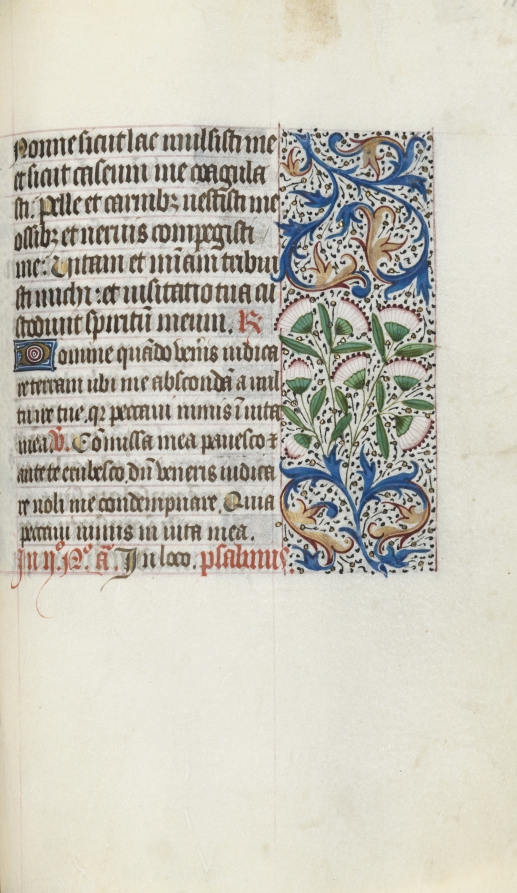 Nonne sicut lac mulsisti me
et sicut caseum me coagula
sti. Pelle et carnibꝫ vestisti me
ossibꝫ et neruis compegisti
me. Vitam et miãm tribui
sti michi: et visitatio tua cu
stodiuit spiritũ meum. R
Domine quãdo venis iudica
re terram ubi me abscondã a vul
tu ire tue. qꝛ peccaui nimis ĩ uita
mea. V. Cõmissa mea pavesco ⁊
ante te erubesco. dũ veneris iudica
re noli me condempnare. Quia
peccaui nimis in uita mea.
In ij.º N.º ã. In loco. psalmus.